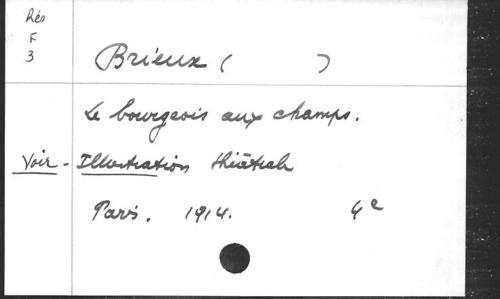 Rés
F
3
Brieux ( )
Le bourgeois aux champs.
Voir - Illustration théâtrale
Paris. 1914. 4e